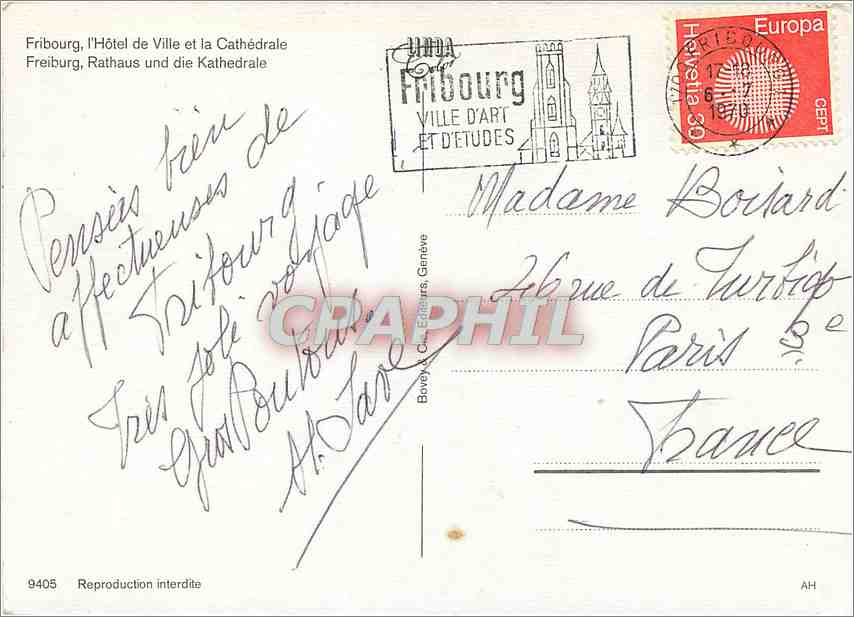 Fribourg, l'Hôtel de Ville et la Cathédrale
Freiburg, Rathaus und die Kathedrale
LINDA
Fribourg
VILLE D'ART
ET D'ETUDES
Europa
Helvetia 30
CEPT
1700 FRIBOURG
17-18
6-7
1970
Pensées bien
affectueuses de
Fribourg
Très joli voyage
Gros
Madame Boisard
26 rue de Turbigo
Paris 3e
France
Bovey & Cie, Editeurs, Genève
CPAPHIL
9405 Reproduction interdite
AH